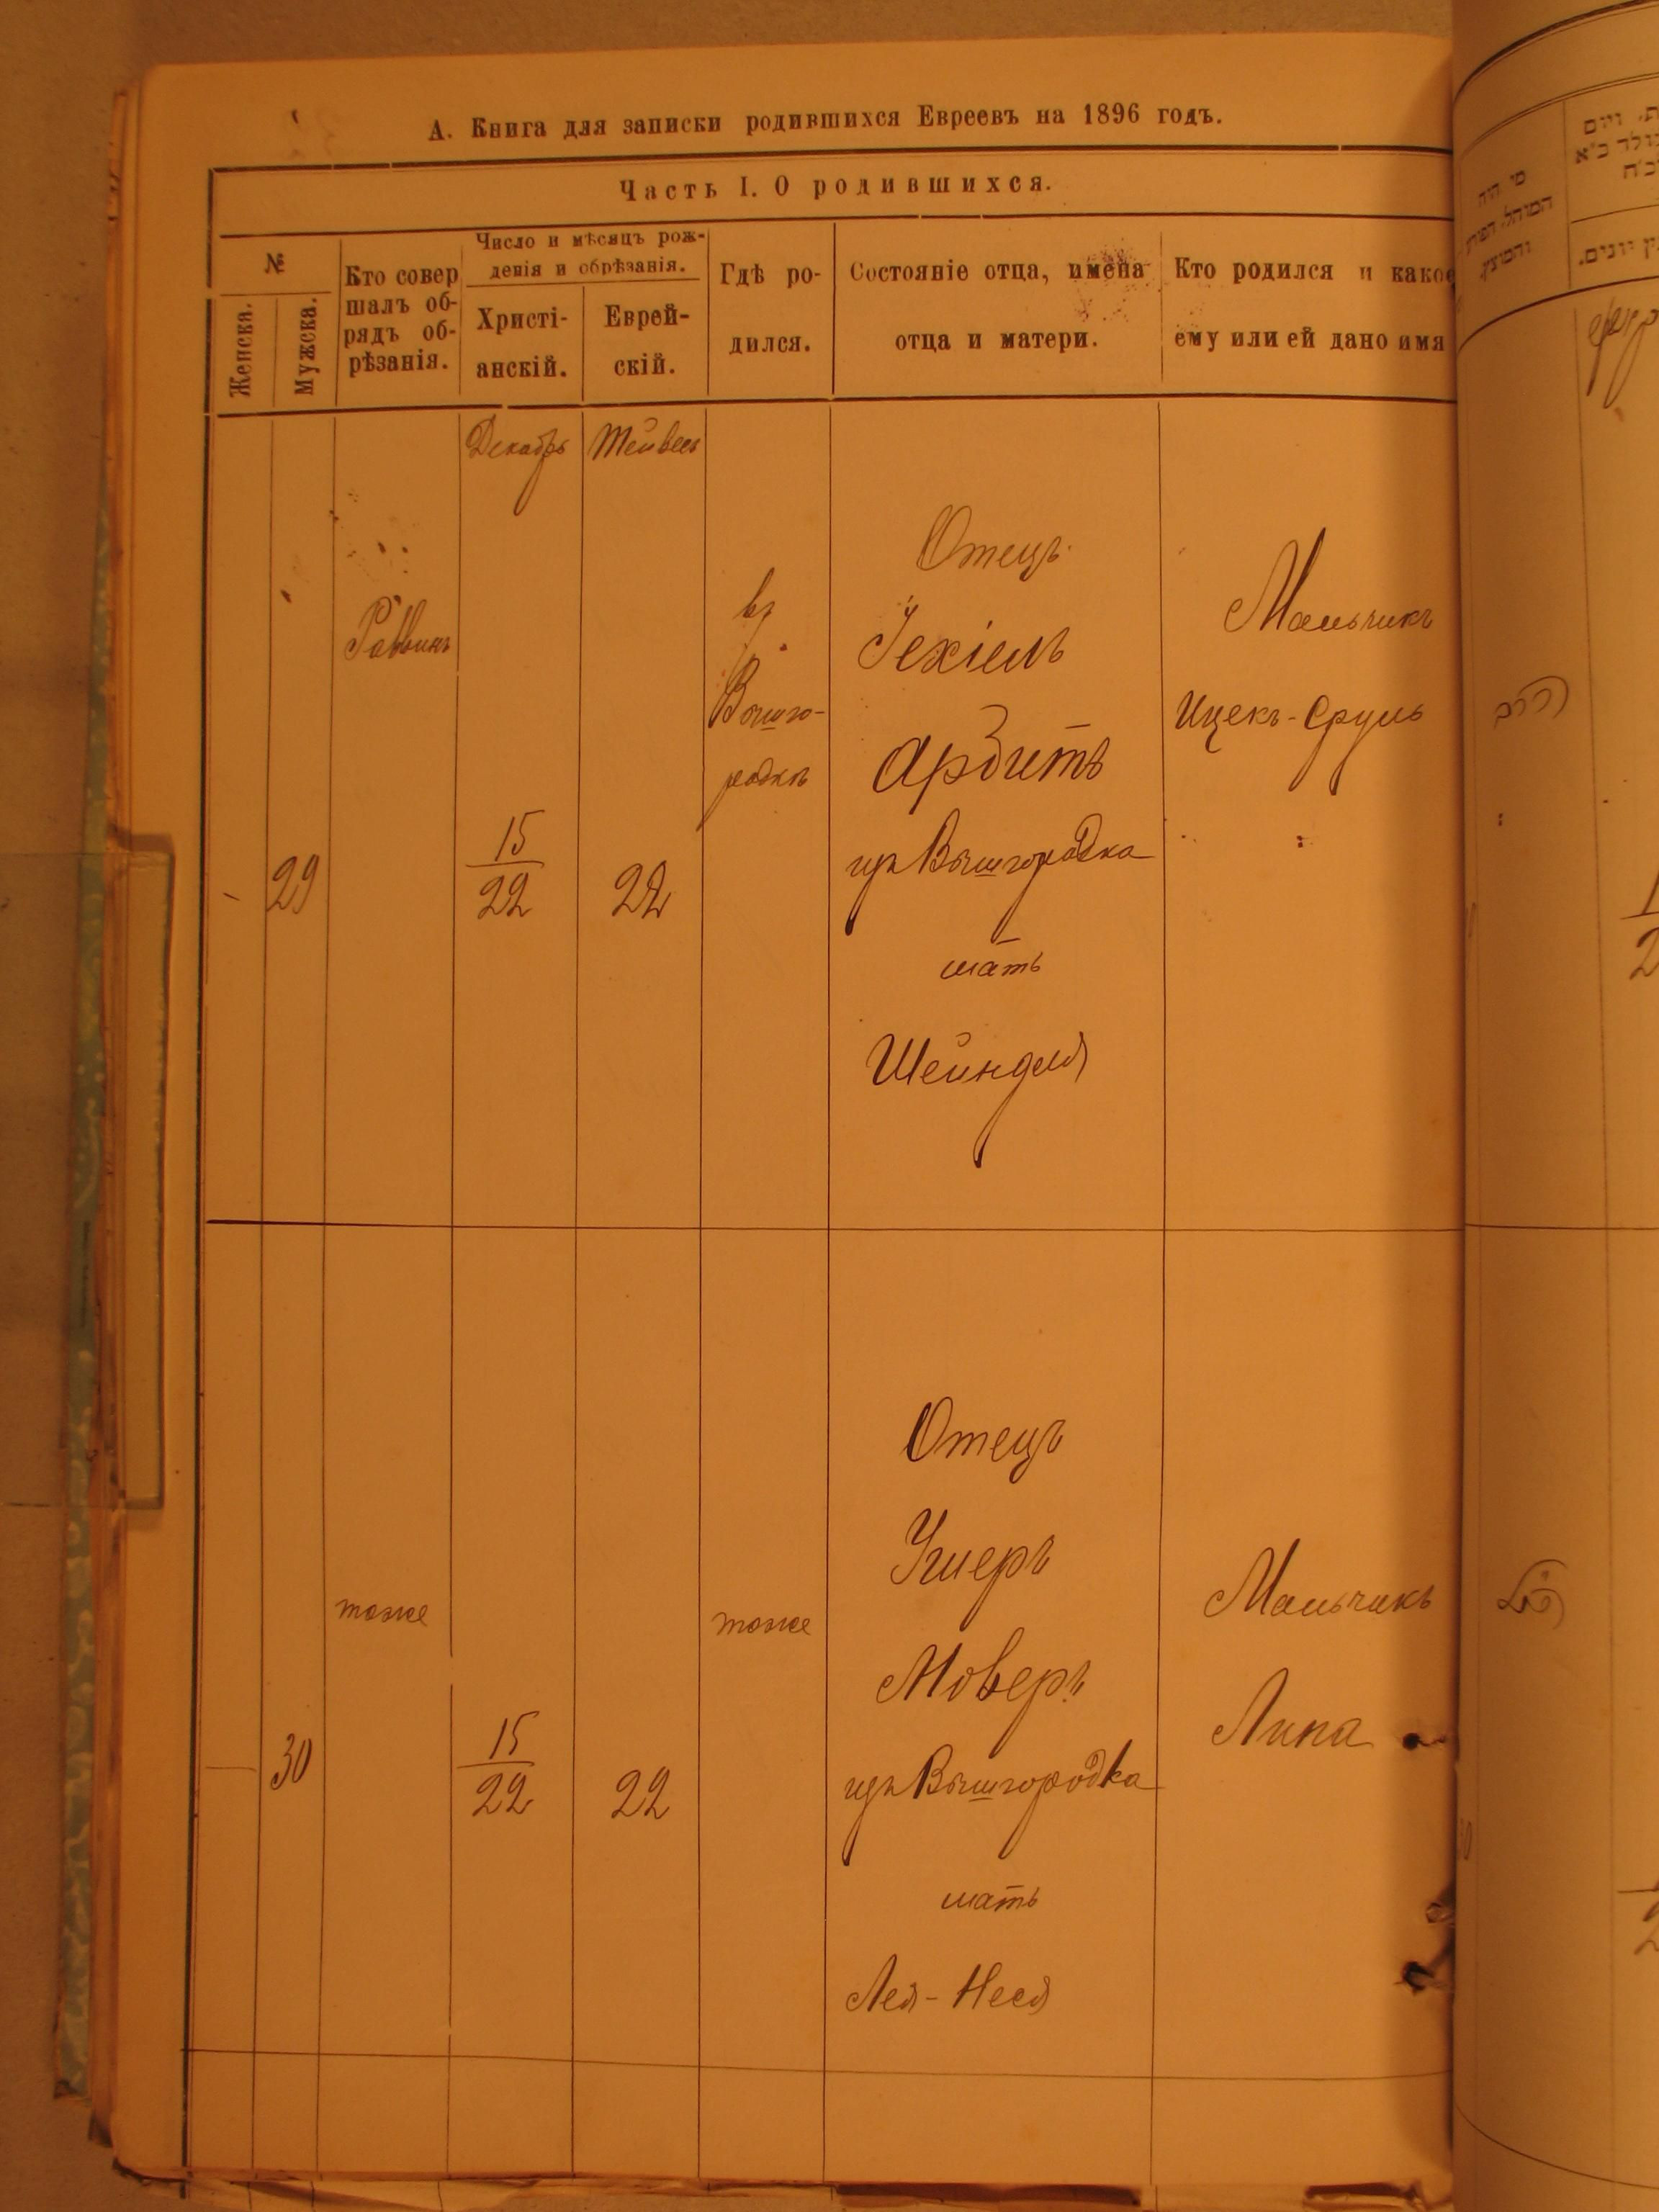 А. Книга для записки родившихся Евреевъ на 1896 годъ.
Часть I. О родившихся.
№
Женска.
Мужска.
Кто совер
шалъ об-
рядъ об-
рѣзанія.
Число и мѣсяцъ рож-
денія и обрѣзанія.
Христі-
анскій.
Еврей-
скій.
Гдѣ ро-
дился.
Состояніе отца, имена
отца и матери.
Кто родился и какое
ему или ей дано имя
Декабрь
Тейвесъ
29
Раввинъ
15
22
22
въ
Вышго-
родкѣ
Отецъ
Іехіель
Арбитъ
изъ Вышгородка
мать
Шейндля
Мальчикъ
Ицекъ-Сруль
30
тоже
15
22
22
тоже
Отецъ
Ушеръ
Моверъ
изъ Вышгородка
мать
Лея-Неся
Мальчикъ
Липа
מי היה
המוהל הפורע
והמוצץ.
הרב